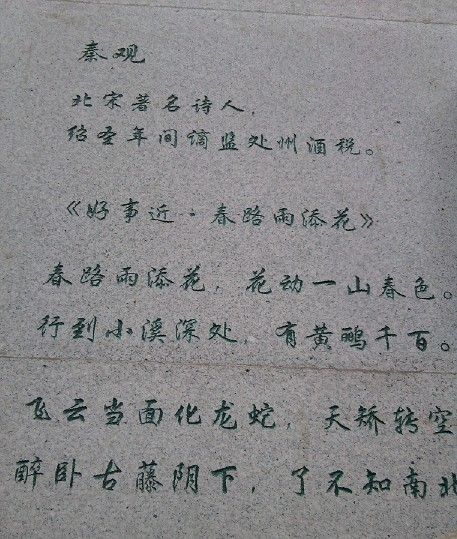 秦观
北宋著名诗人，
绍圣年间谪监处州酒税。
《好事近·春路雨添花》
春路雨添花，花动一山春色。
行到小溪深处，有黄鹂千百。
飞云当面化龙蛇，天矫转空
醉卧古藤阴下，了不知南北